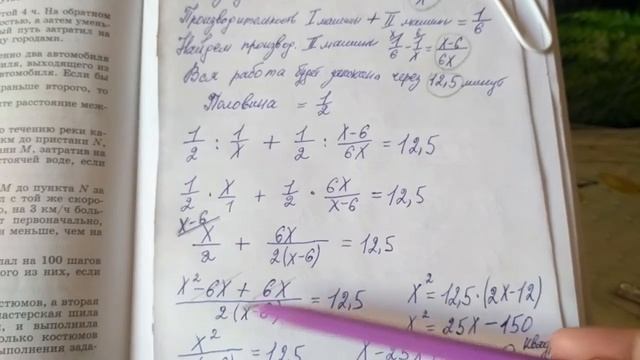 этой 4 ч. На обратном
остью, а затем умень-
ый путь затратил на
у городами.
енно два автомобиля
вля, выходящего из
автомобиля. Если бы
раньше второго, то
те расстояние меж-
о течению реки ка-
км до пристани N,
ани M, затратив на
стоячей воде, если
M до пункта N за
л с той же скоро-
о, на 3 км/ч боль-
ет первоначально,
и меньше, чем на
пал на 100 шагов
ого из них, если
остюмов, а вторая
мастерская шила
и, и выполнила
олько костюмов
выполнения зада-
x
Производительность I машины + II машины = 1/6
Найдем производ. II машины 1/6 - 1/x = (x-6)/6x
Вся работа будет закончена через 12,5 минут
Половина = 1/2
1/2 : 1/x + 1/2 : (x-6)/6x = 12,5
1/2 · x/1 + 1/2 · 6x/(x-6) = 12,5
x-6
x/2 + 6x/2(x-6) = 12,5
(x² - 6x + 6x)/2(x-6) = 12,5
x² = 12,5 · (2x-12)
x² = 25x - 150